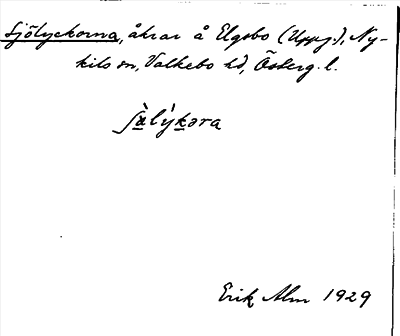 Sjölyckorna, åkrar å Elgsbo (Uppg.), Ny-
kils sn, Valkebo hd, Österg. l.
ʃàlýkəra
Erik Alm 1929